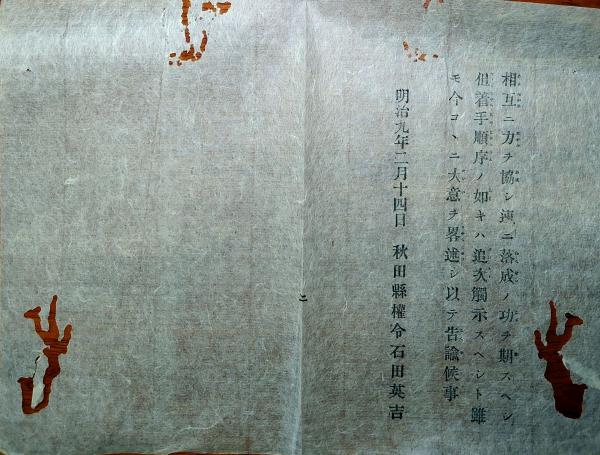 相互ニ力ヲ協シ速ニ落成ノ功ヲ期スヘシ
但着手順序ノ如キハ追次觸示スヘシト雖
モ今コヽニ大意ヲ畧述シ以テ告諭候事
明治九年二月十四日 秋田縣權令石田英吉
ニ